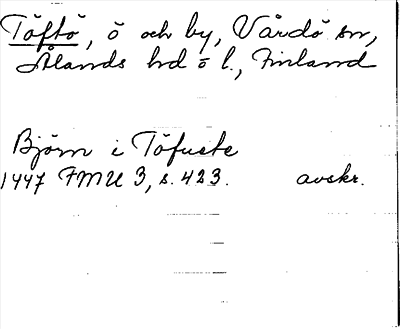 Töftö, ö och by, Vårdö sn,
Ålands hd o l., Finland
Björn i Töfuste
1447 FMU 3, s. 423. avskr.